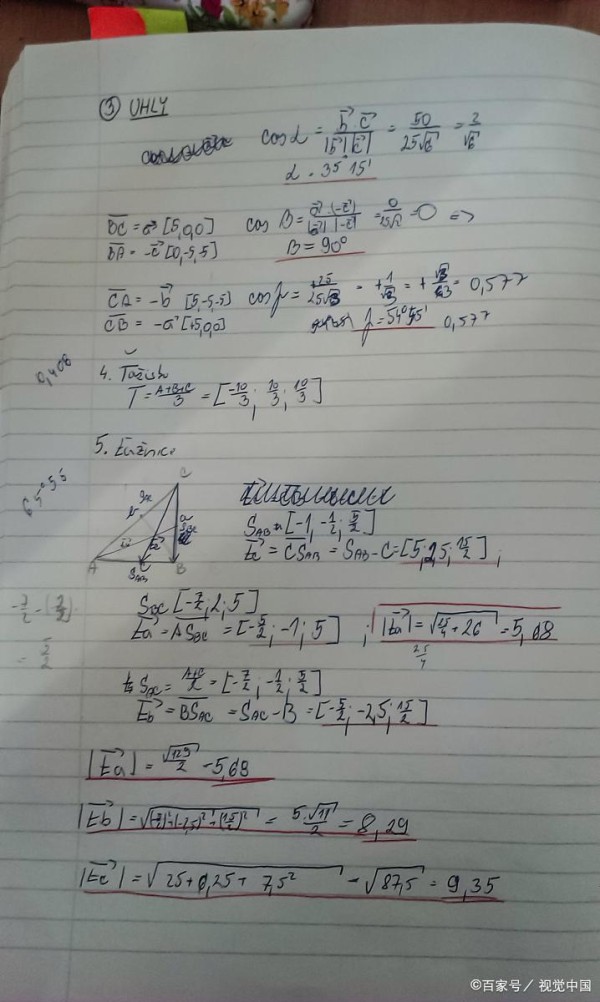 ③ UHLY
cos α = b⃗·c⃗ / |b⃗||c⃗| = 50 / 25√6 = 2/√6
α = 35°15'
BC = a⃗ [5,0,0] cos β = = 0 = 0 =>
BA = -c⃗ [0,-5,5] β = 90°
CA = -b⃗ [5,-5,5] = +1/√3 = 0,577
CB = -a⃗ γ = 54° 0,577
0,408
4. Težisko
T = A+B+C / 3 = [-10/3; 10/3; 10/3]
5. Ťažnice
C
a
A S_AB B
S_AB = [-1, -1/2; 5/2]
t⃗c = CS_AB = S_AB - C = [5; 2,5; 15/2];
S_BC [-7/2, 2; 5]
t⃗a = AS_BC = [-5/2; -1; 5] ; |t⃗a| = = 5,68
25/4
S_AC = A+C / 2 = [-7/2; -1/2; 5/2]
t⃗b = BS_AC = S_AC - B = [-5/2; -2,5; 15/2]
|t⃗a| = √129 / 2 = 5,68
|t⃗b| = √(-5/2)²+(-2,5)²+(15/2)² = 5·√11 / 2 = 8,29
|t⃗c| = √25+6,25+7,5² = √87,5 = 9,35
©百家号／视觉中国